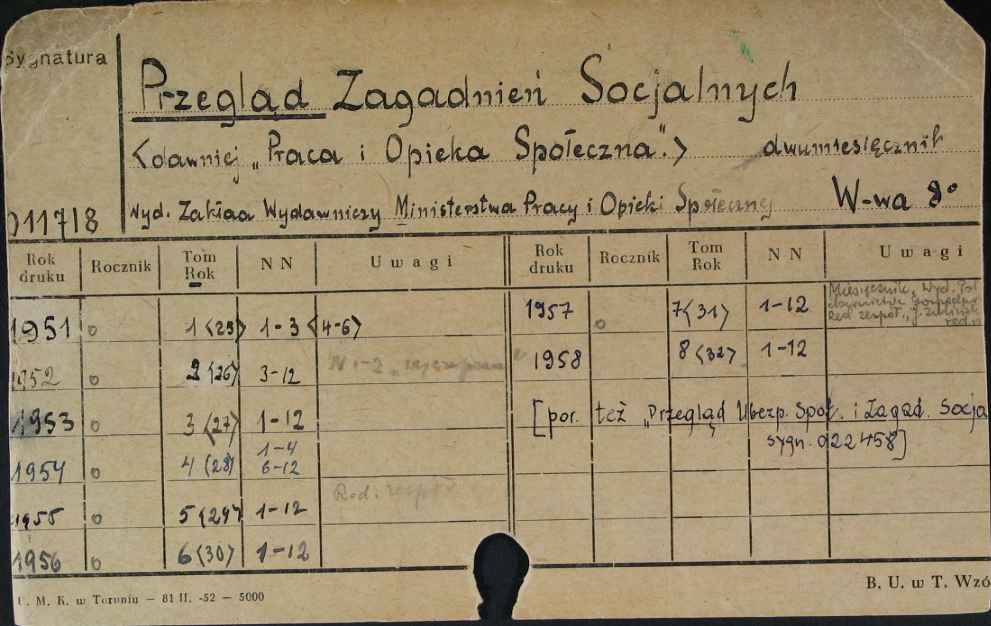 Sygnatura
Przegląd Zagadnień Socjalnych
<dawniej "Praca i Opieka Społeczna".> dwumiesięcznik
Wyd. Zakład Wydawniczy Ministerstwa Pracy i Opieki Społecznej W-wa 8°
011718
Rok druku Rocznik Tom Rok N N Uwagi Rok druku Rocznik Tom Rok N N Uwagi
1951 o 1<25> 1-3<4-6> 1957 o 7<31> 1-12 Miesięcznik, Wyd.
1952 o 2<26> 3-12 N 1-2 "wyczerpane" 1958 8<32> 1-12
1953 o 3<27> 1-12 [por. też "Przegląd Ubezp. Społ. i Zagad. Socja
1954 o 4(28) 1-4 6-12 sygn. 022458]
1955 o 5<29> 1-12 Red: zespół
1956 o 6<30> 1-12
U. M. K. w Toruniu — 81 II. -52 — 5000
B. U. w T. Wzó